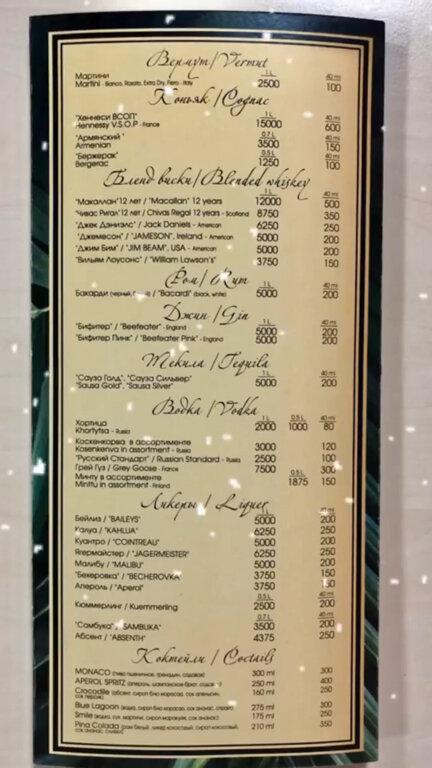 Вермут / Vermut
Мартини 1 L 40 ml
Martini - Bianco, Rosato, Extra Dry, Fiero - Italy 2500 100
Коньяк / Cognac
"Хеннеси ВСОП" 1 L 40 ml
Hennessy V.S.O.P - France 15000 600
"Армянский" 0.7 L 40 ml
Armenian 3500 150
"Бержерак" 0.5 L 40 ml
Bergerac 1250 100
Бленд виски / Blended whiskey
1 L 40 ml
"Макаллан" 12 лет / "Macallan" 12 years 12000 500
"Чивас Ригал" 12 лет / Chivas Regal 12 years - Scotland 8750 350
"Джек Дэниэлс" / Jack Daniels - American 6250 250
"Джемесон" / "JAMESON", Ireland - American 5000 200
"Джим Бим" / "JIM BEAM", USA - American 5000 200
"Вильям Лоусонс" / "William Lawson's" 3750 150
Ром / Rum
1 L 40 ml
Бакарди / "Bacardi" (black, white) 5000 200
Джин / Gin
1 L 40 ml
"Бифитер" / "Beefeater" - England 5000 200
"Бифитер Пинк" / "Beefeater Pink" - England 5000 200
Текила / Tequila
"Сауза Голд", "Сауза Сильвер" 1 L 40 ml
"Sausa Gold", "Sausa Silver" 5000 200
Водка / Vodka
Хортица 1 L 0.5 L 40 ml
Khortytsa - Russia 2000 1000 80
Коскенкорва в ассортименте
Kosenkenva in assortment - Russia 3000 120
"Русский Стандарт" / Russian Standard - Russia 2500 100
Грей Гуз / Grey Goose - France 7500 300
Минту в ассортименте 0.5 L 40 ml
Minttu in assortment - Finland 1875 150
Ликеры / Liquer
1 L 40 ml
Бейлиз / "BAILEYS" 5000 200
Калуа / "KAHLUA" 6250 250
Куантро / "COINTREAU" 5000 200
Ягермайстер / "JAGERMEISTER" 6250 250
Малибу / "MALIBU" 5000 200
"Бехеровка" / "BECHEROVKA" 3750 150
Апероль / "Aperol" 3750 150
0.5 L 40 ml
Кюммерлинг / Kuemmerling 2500 200
0.7 L 40 ml
"Самбука" / "SAMBUKA" 3500 200
Абсент / "ABSENTH" 4375 250
Коктейли / Coctails
MONACO (пиво пшеничное, гренадин, содовая) 300 ml 300
APEROL SPRITZ (апероль, шампанское брют, содовая) 250 ml 400
Crocodile (абсент, сироп блю кюрасао, сок апельсин, 160 ml 250
сок персик)
Blue Lagoon (водка, сироп блю кюрасао, сок ананас, спрайт) 275 ml 300
Smile (водка, сироп маракуйя, сок ананас) 175 ml 250
Pina Colada (ром белый, ликер кокосовый, сироп кокосовый, 210 ml 350
сок ананас, сливки)